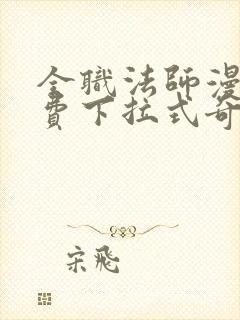 全職法師漫
費下拉式奇
宋飛